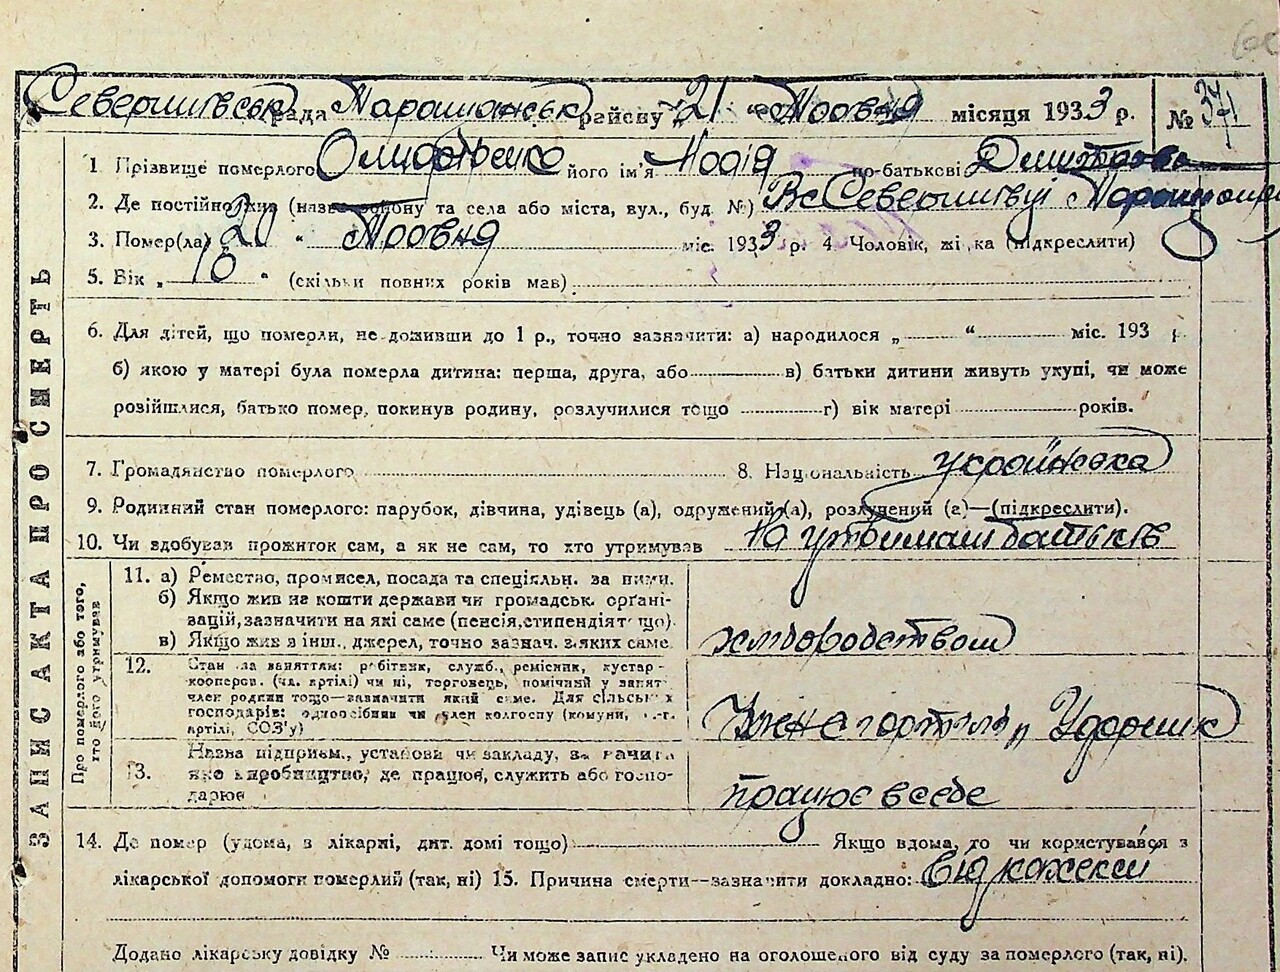 рада районну 21 " Травня місяця 1933 р. №
1. Прізвище померлого його ім'я Надія по-батькові Дмитровна
2. Де постійно жив (назва району та села або міста, вул., буд. №) Вс
3. Помер(ла) 21 " Травня міс. 1933 р. 4. Чоловік, жінка (підкреслити)
5. Вік „ 10 " (скільки повних років мав)
6. Для дітей, що померли, не доживши до 1 р., точно зазначити: а) народилося „ " міс. 193 р.
б) якою у матері була померла дитина: перша, друга, або в) батьки дитини живуть укупі, чи може
розійшлися, батько помер, покинув родину, розлучилися тощо г) вік матері років.
ЗАПИС АКТА ПРО СМЕРТЬ
7. Громадянство померлого 8. Національність українська
9. Родинний стан померлого: парубок, дівчина, удівець (а), одружений (а), розлучений (а)—(підкреслити).
10. Чи здобував прожиток сам, а як не сам, то хто утримував На утриман батьків
Про померлого або того, хто його утримував
11. а) Ремество, промисел, посада та спеціяльн. за ними.
б) Якщо жив на кошти держави чи громадськ. орґані-
зацій, зазначити на які саме (пенсія, стипендія тощо).
в) Якщо жив з інш. джерел, точно зазнач. з яких саме
хліборобством
12. Стан за заняттям: робітник, служб., ремісник, кустар-
кооперов. (чл. артілі) чи ні, торговець, помічний у занят.
член родини тощо—зазначити який саме. Для сільськ х
господарів: одноосібник чи член колгоспу (комуни, с.-г.
артілі, СОЗ'у)
Член с г артіли „ Ударник
13. Назва підприєм., установи чи закладу, зазначити
яке виробництво, де працює, служить або госпо-
дарює
працює в себе
14. Де помер (удома, в лікарні, дит. домі тощо) Якщо вдома, то чи користувався з
лікарської допомоги померлий (так, ні) 15. Причина смерти—зазначити докладно: від кахексії
Додано лікарську довідку № Чи може запис укладено на оголошеного від суду за померлого (так, ні).